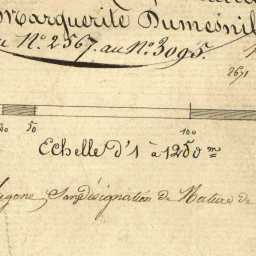 Marguerite Dumesnil
N.° 2567. au N.° 3095.
2671
50 100
Echelle d'1 à 1250 m
Sans désignation de Nature de